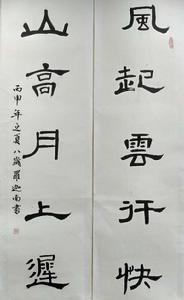 風起雲行快
山高月上遲
丙申年立夏八歲羅迦南書